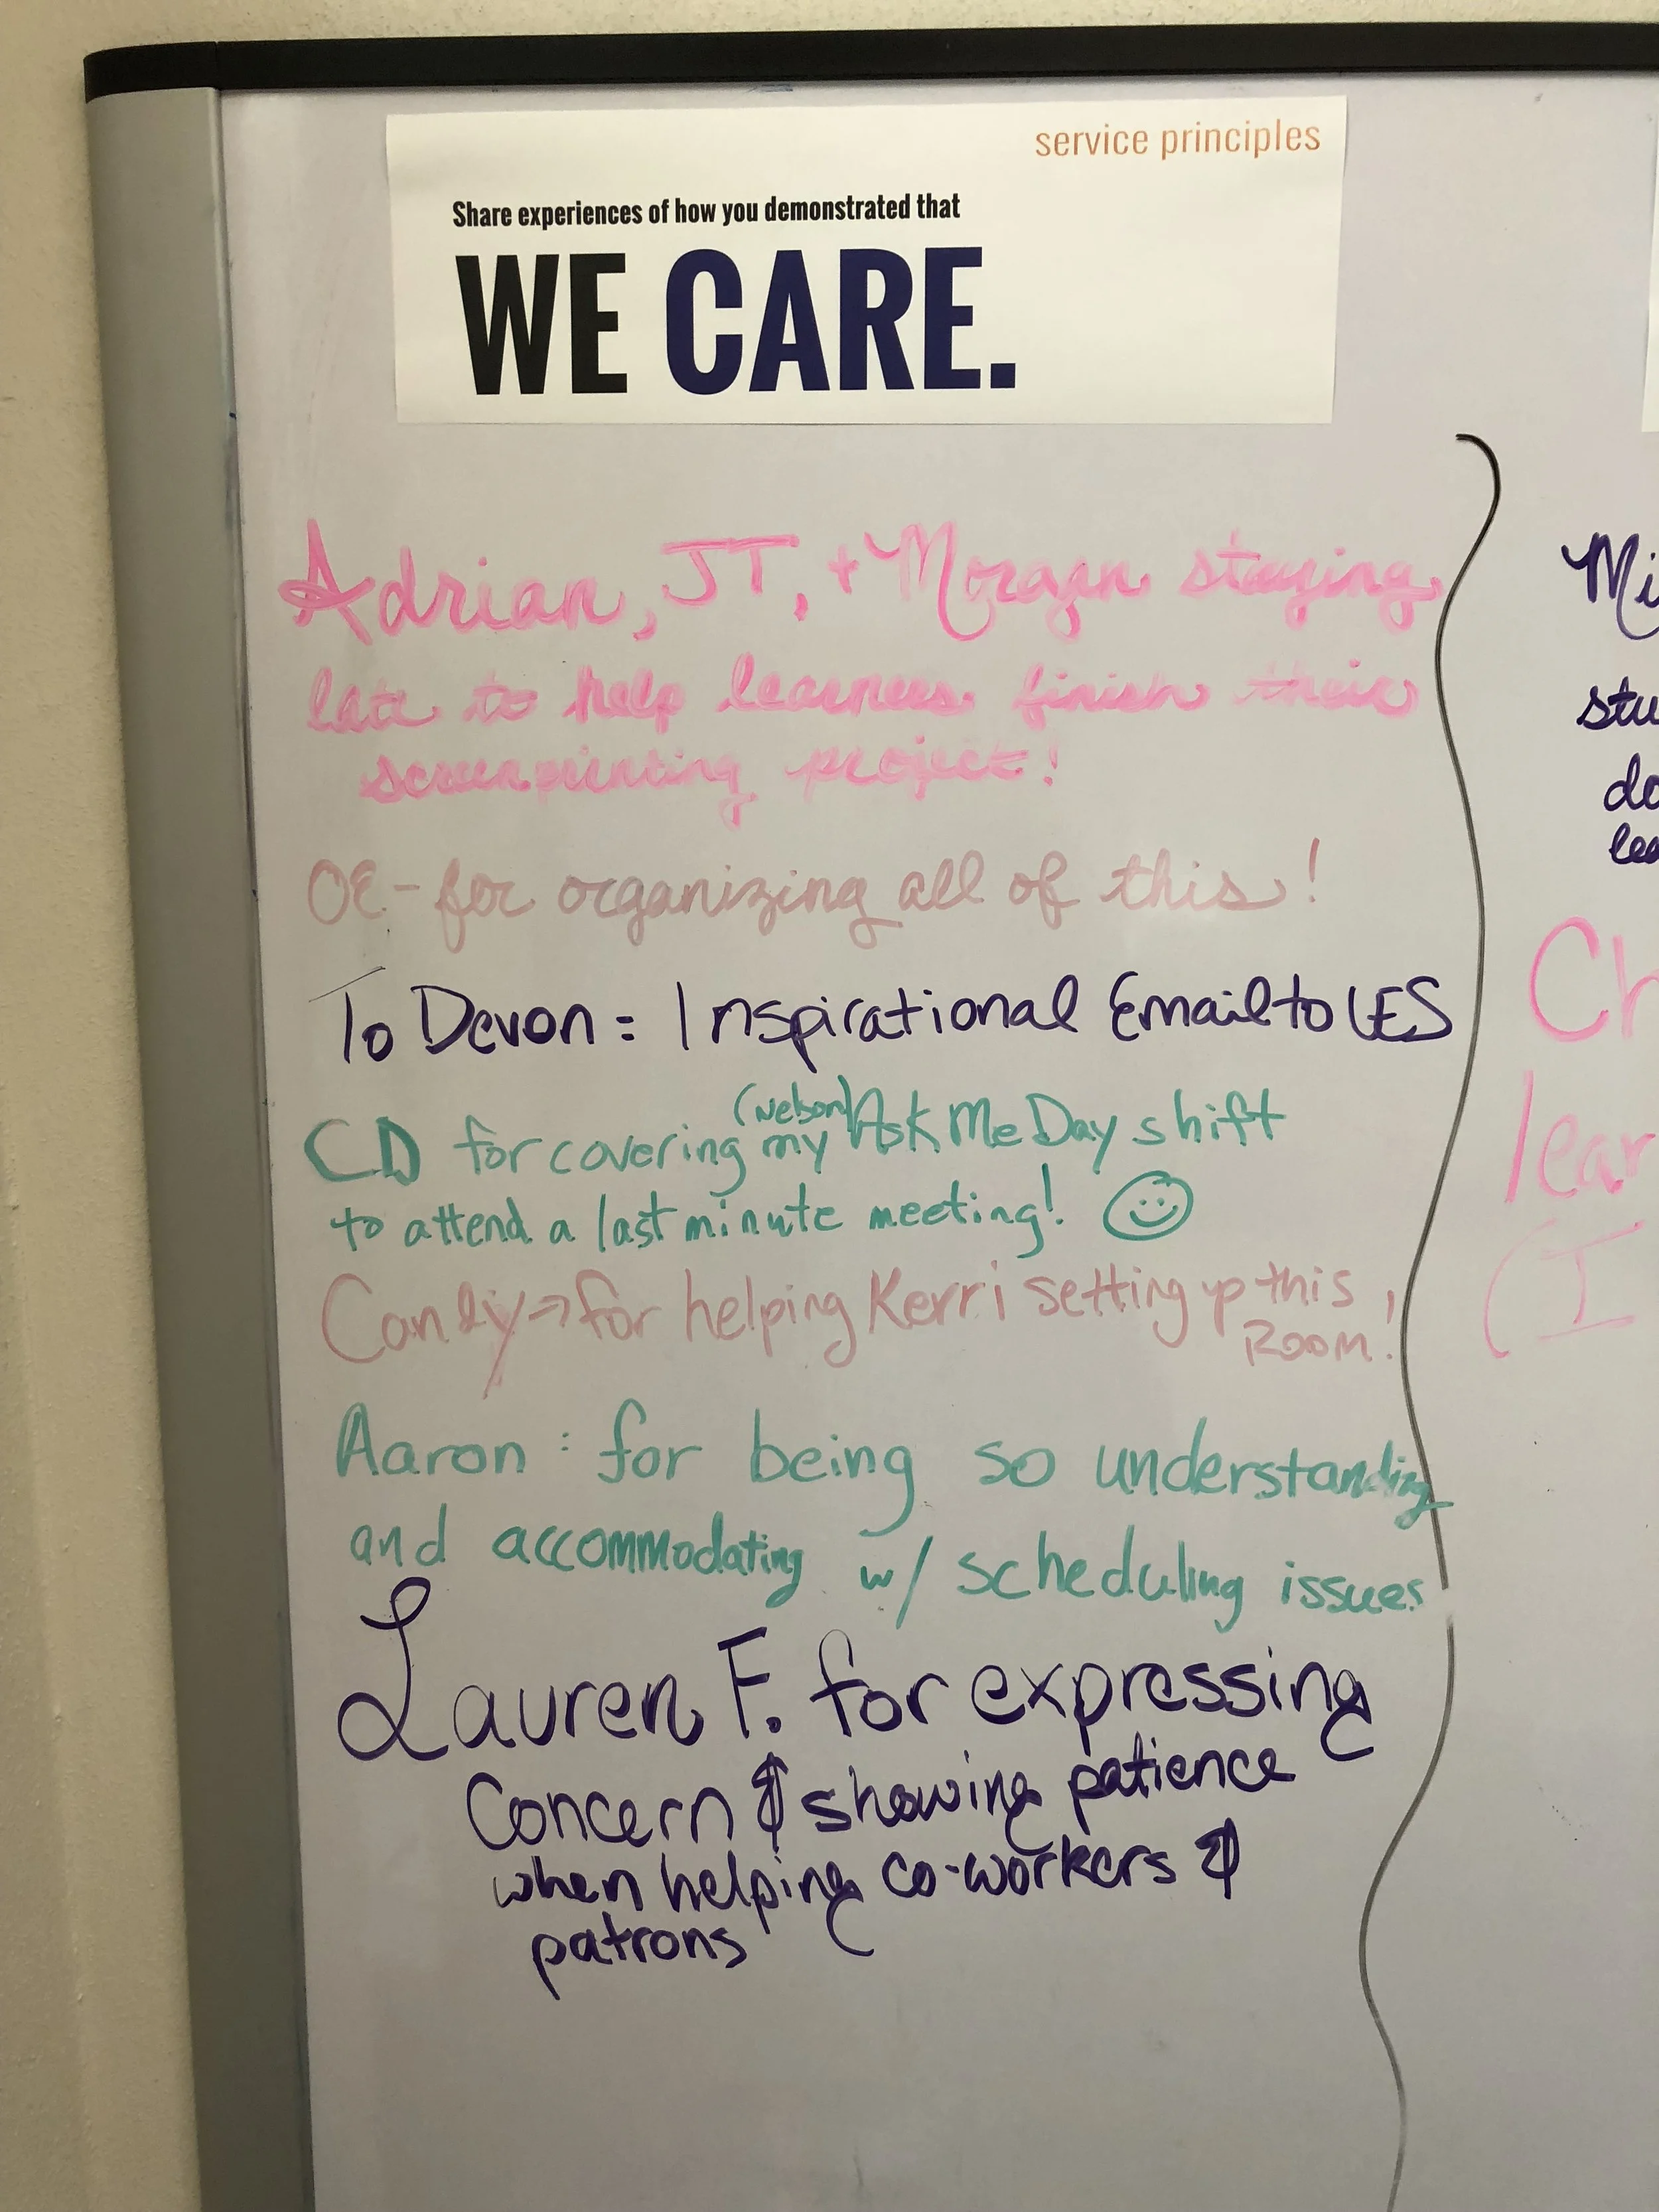 service principles
Share experiences of how you demonstrated that
WE CARE.
Adrian, JT, + Morgan staying
late to help learners finish their
screenprinting project!
OE - for organizing all of this!
To Devon = Inspirational Email to LES
CD for covering (Nelson) my Ask Me Day shift
to attend a last minute meeting!
Candy → for helping Kerri setting up this
ROOM!
Aaron : for being so understanding
and accommodating w/ scheduling issues
Lauren F. for expressing
Concern & showing patience
when helping co-workers &
patrons
Mi
stu
do
lea
Ch
lear
(I